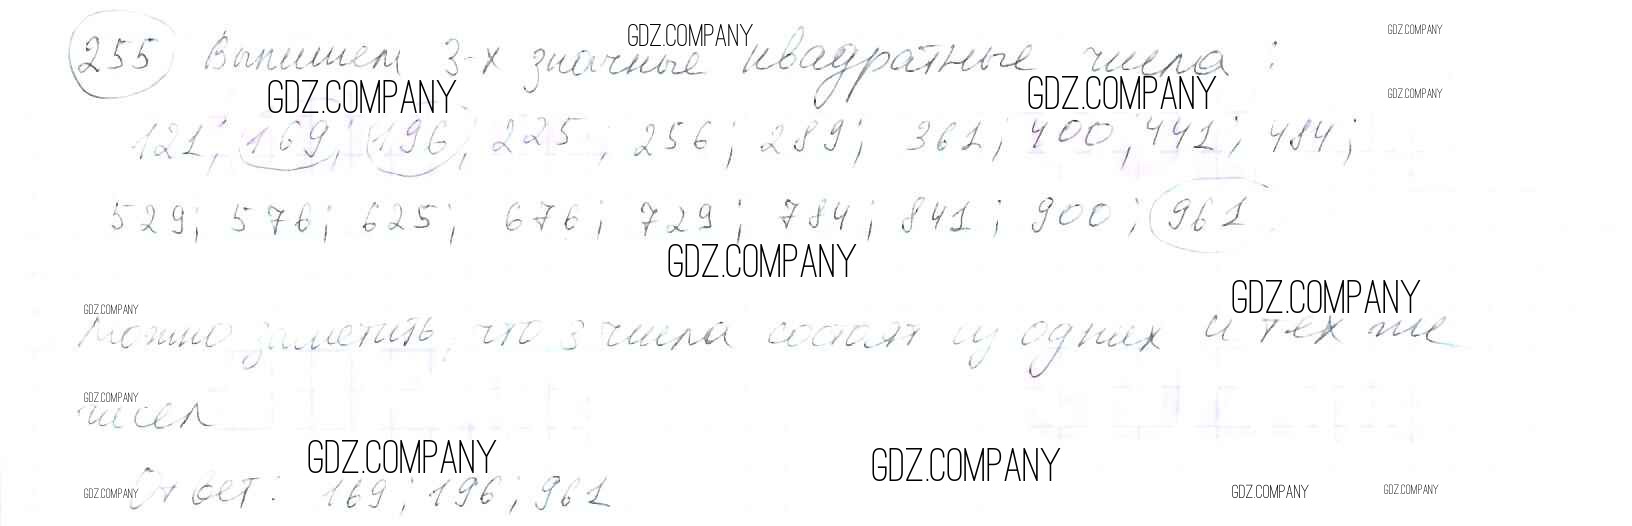 GDZ.COMPANY
GDZ.COMPANY
255 Выпишем 3-х значные квадратные числа:
GDZ.COMPANY
GDZ.COMPANY
GDZ.COMPANY
121; 169; 196; 225; 256; 289; 361; 400; 441; 484;
529; 576; 625; 676; 729; 784; 841; 900; 961.
GDZ.COMPANY
GDZ.COMPANY
GDZ.COMPANY
Можно заметить, что 3 числа состоят из одних и тех же
GDZ.COMPANY
чисел
GDZ.COMPANY
GDZ.COMPANY
Ответ: 169; 196; 961
GDZ.COMPANY
GDZ.COMPANY
GDZ.COMPANY